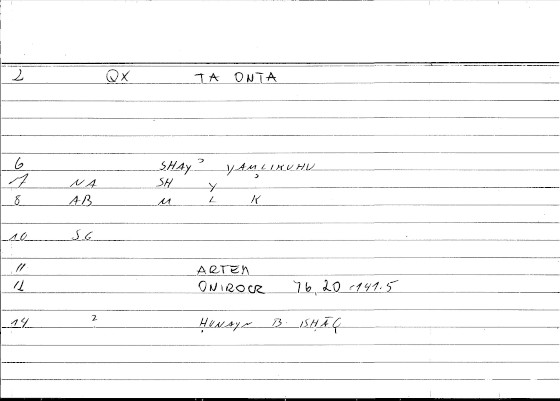 2 QX TA ONTA
6 SHAYʾ YAMLIKUHU
7 NA SH Y ʾ
8 AB M L K
10 SG
11 ARTEM
12 ONIROCR 76,20 -141.5
14 2 ḤUNAYN B. ISḤĀQ